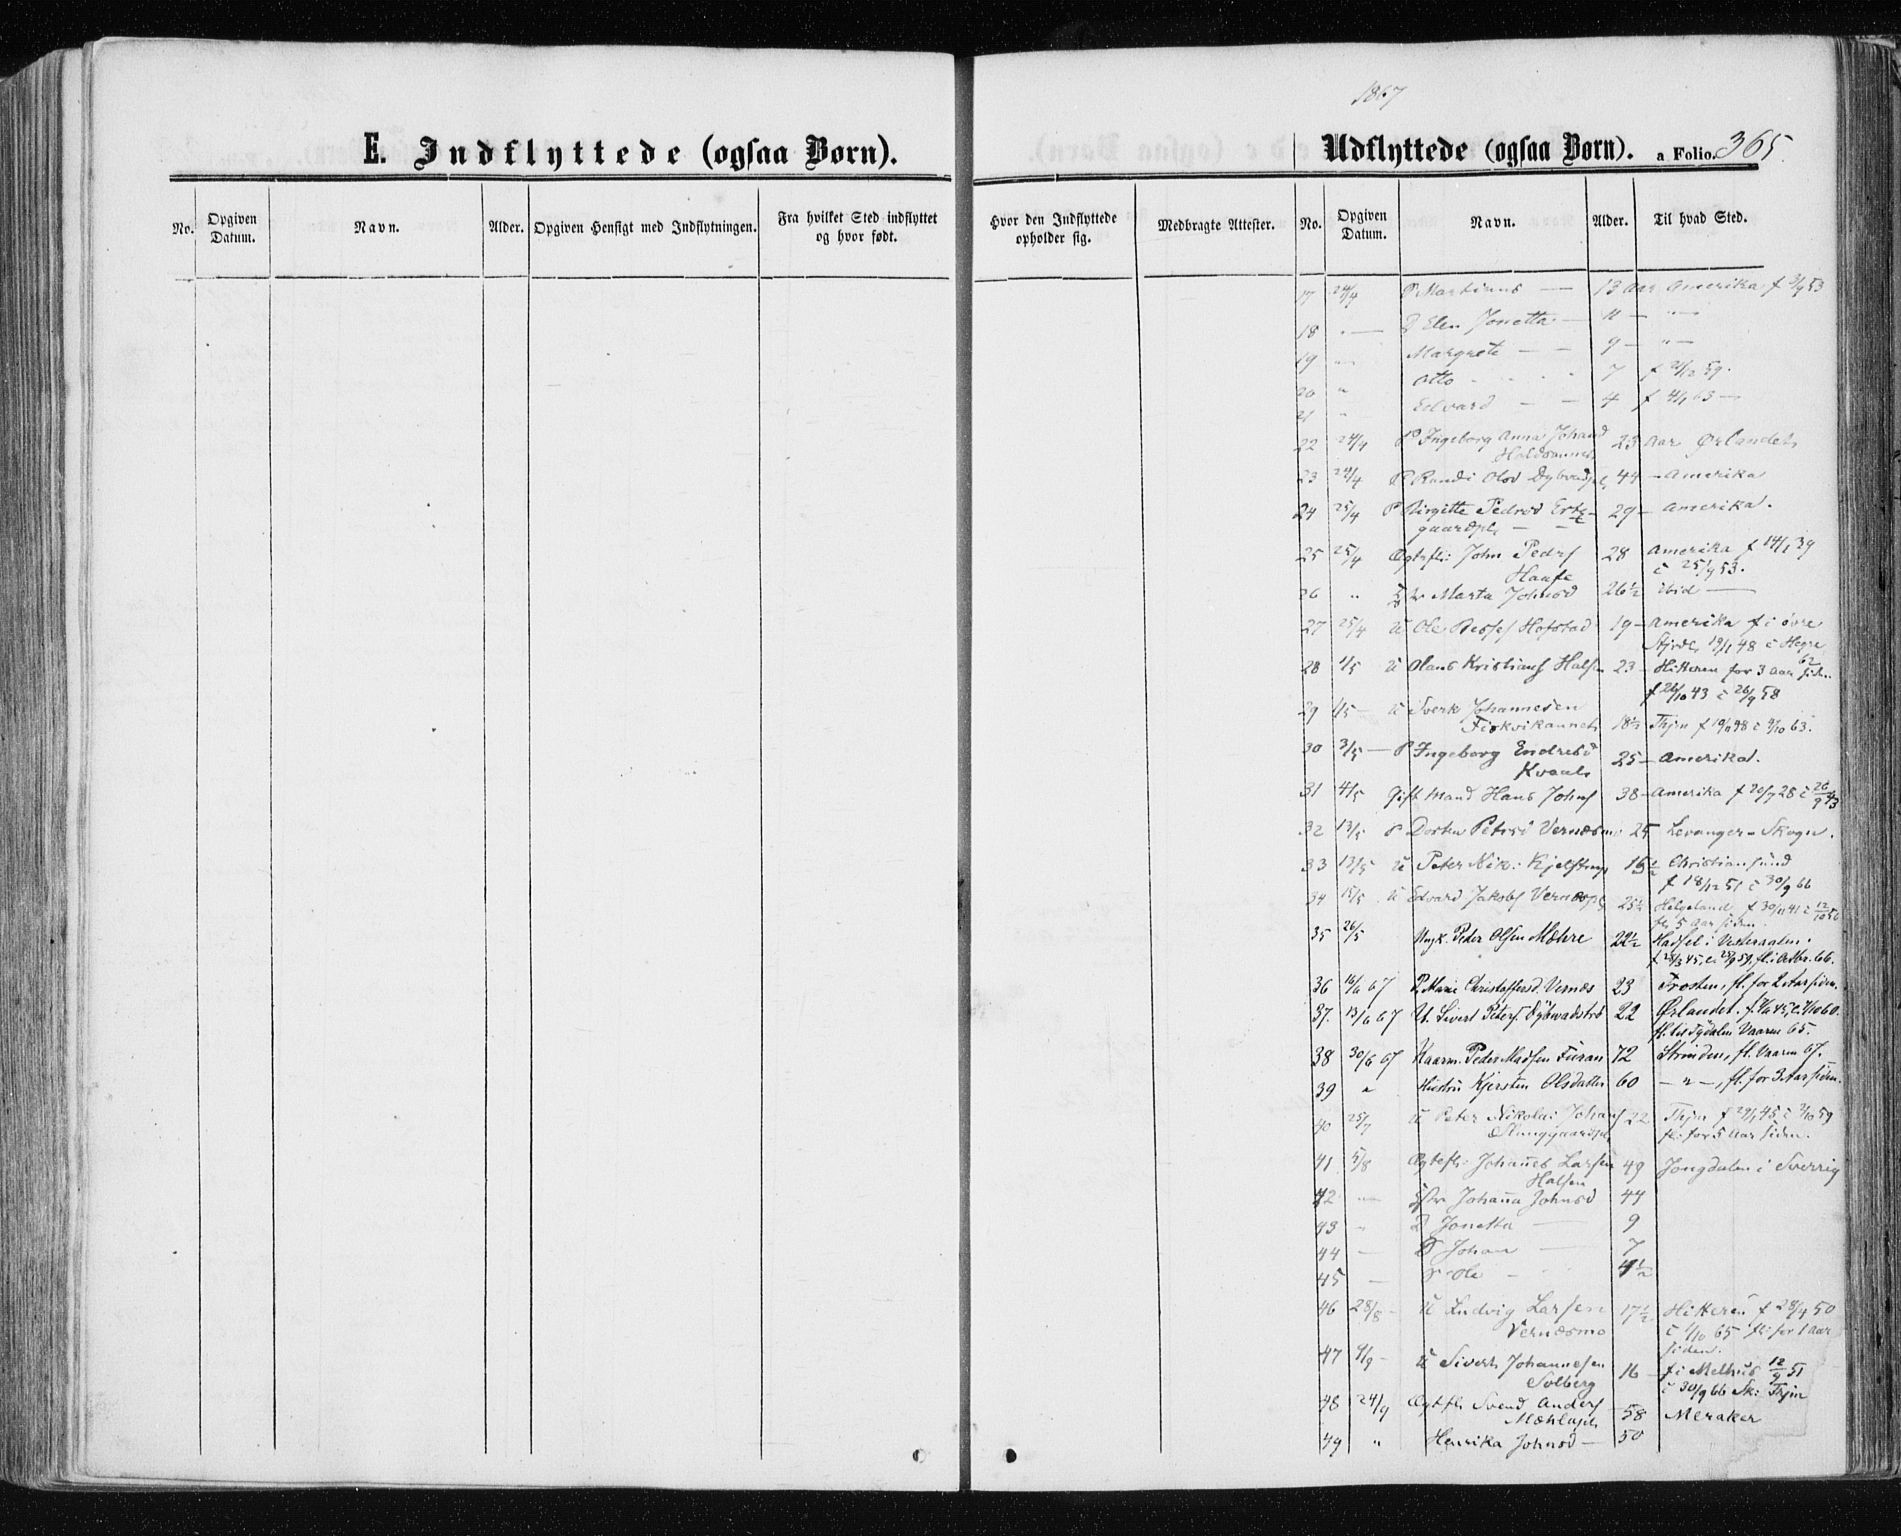 1867
E. Indflyttede (ogsaa Børn).
Udflyttede (ogsaa Børn). a Folio. 365.
No. Opgiven Datum. Navn. Alder. Opgiven Hensigt med Indflytningen. Fra hvilket Sted indflyttet og hvor født. Hvor den Indflyttede opholder sig. Medbragte Attester. No. Opgiven Datum. Navn. Alder. Til hvad Sted.
17 24/4 Martinus — 13 Aar Amerika f 3/9 53
18 " — Elen Jonetta — 11 — " —
19 " Margrete — — 9 — " —
20 " Otto 7 f 21/12 59.
21 " Edvard — — 4 f 4/1 63 —
22 24/4 P Ingeborg Anna Johansd 23 Aar Ørlandet
23 24/4 P Randi Olsd 44 — Amerika
24 25/4 P Birgitte Pedersd 29 — Amerika.
25 25/4 Ægtefl: John Peders 28 Amerika f 14/1 39
Haafe c 25/9 53.
26 " Marta Johnsd 26½ ibid —
27 25/4 U Ole Hofstad 19 — Amerika f i øvre
Stjrdl 19/1 48 c Hegre 62
28 1/5 U Olaus Kristians Halsen 23 — Hitteren for 3 Aar siden.
f 26/10 43 c 26/9 58
29 1/5 — U Sverk Johannesen
Fiskvikaunet 18½ Thjm
30 3/5 — P Ingeborg Endresd
Kvaals 25 — Amerika.
31 4/5 Gift Mand Hans Johns 38 — Amerika f 20/7 28 c 26/9 43
32 13/5 P Petersd 25 Levanger - Skogn.
33 13/5 U Peter Nik: Kjelstrup 15½ Christiansund
f 18/12 51 c 30/9 66
34 15/5 U Edvard Jakobs 25½ Helgeland f 30/11 41 c 12/10 56
fl: 5 Aar siden.
35 26/5 Ungk. Peder Olsen Mæhre 22½ Hadsel i Vesteraalen.
36 16/6 67 P. Marie Christoffersd. Vernæs 23 Frosten, fl. for 2 Aar siden.
37. 13/6 67 U. Sivert Peters. 22 Ørlandet.
fl. til Tydalen Vaaren 65.
38 30/6 67 Kaarm. Peder Madsen Furan 72 Strinden, fl. Vaaren 67.
39 " Hustru Kjersten Olsdatter 60 — " —, fl. for 3 Aar siden.
40 25/7 U Peter Nikolai Johans 22 Thjm f 29/1 45 c 2/10 59
fl: for 5 Aar siden.
41 5/8 Ægtefl: Johanes Larsen 49 Jongdalen i Sverrig
Halsen
42 — Johana Johnsd 44
43 " D Jonetta — 9
44 — S Johan — 7
45 — S Ole — 4½
46 28/8 — U Ludvig Larsen 17½ Hitteren f 28/4 50
Vernæsmo c 1/10 65 fl: for 1 Aar
siden.
47 9/9 — U Sivert Johannesen 16 — f i Melhus 12/9 51
Solberg c 30/9 66 Sk: Thjm
48 24/9 Ægtefl: Svend Anders 58 Meraker
49 " Henrika Johnsd — 50